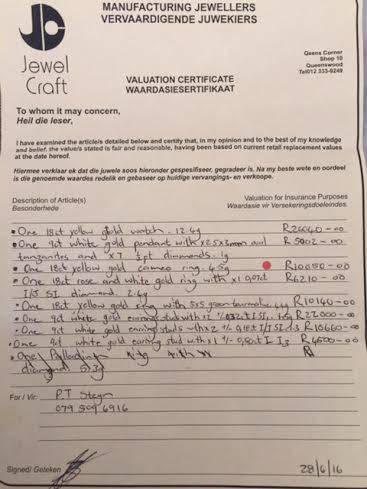 MANUFACTURING JEWELLERS
VERVAARDIGENDE JUWEKIERS
JC
Jewel
Craft
Qeens Corner
Shop 10
Queenswood
Tel012 333-9249
VALUATION CERTIFICATE
WAARDASIESERTIFIKAAT
To whom it may concern,
Heil die leser,
I have examined the article/s detailed below and certify that, in my opinion and to the best of my knowledge
and belief. the value/s stated is fair and reasonable, having been based on current retail replacement values
at the date hereof.
Hiermee verklaar ek dat die juwele soos hieronder gespesifiseer, gegradeer is. Na my beste wete en oordeel
is die genoemde waardes redelik en gebaseer op huidige vervangings- en verkope.
Description of Article(s) Valuation for Insurance Purposes
Besonderhede Waardasie vir Versekeringsdoeleindes.
• One 18ct yellow gold watch - 12.6g R26040-00
• One 9ct white gold pendant with oval R5002-00
tanzanites and x 7 1pt diamonds. 1g
• One 18ct yellow gold cameo ring. 4.5g R10050-00
• One 18ct rose and white gold ring with x1 0,07ct R6210-00
SI diamond 2.6g
• One 18ct yellow gold ring with 5x5 green tourmaline R10140-00
• One 9ct white gold earring stud with R22000-00
• One 9ct white gold earring studs with x2 R10660-00
• One 9ct white gold earring stud with x1 I I3 R4500-00
• One Palladium ring with
diamonds
For / Vir: P.T Steyn
079 509 6916
Signed/ Geteken 28/6/16